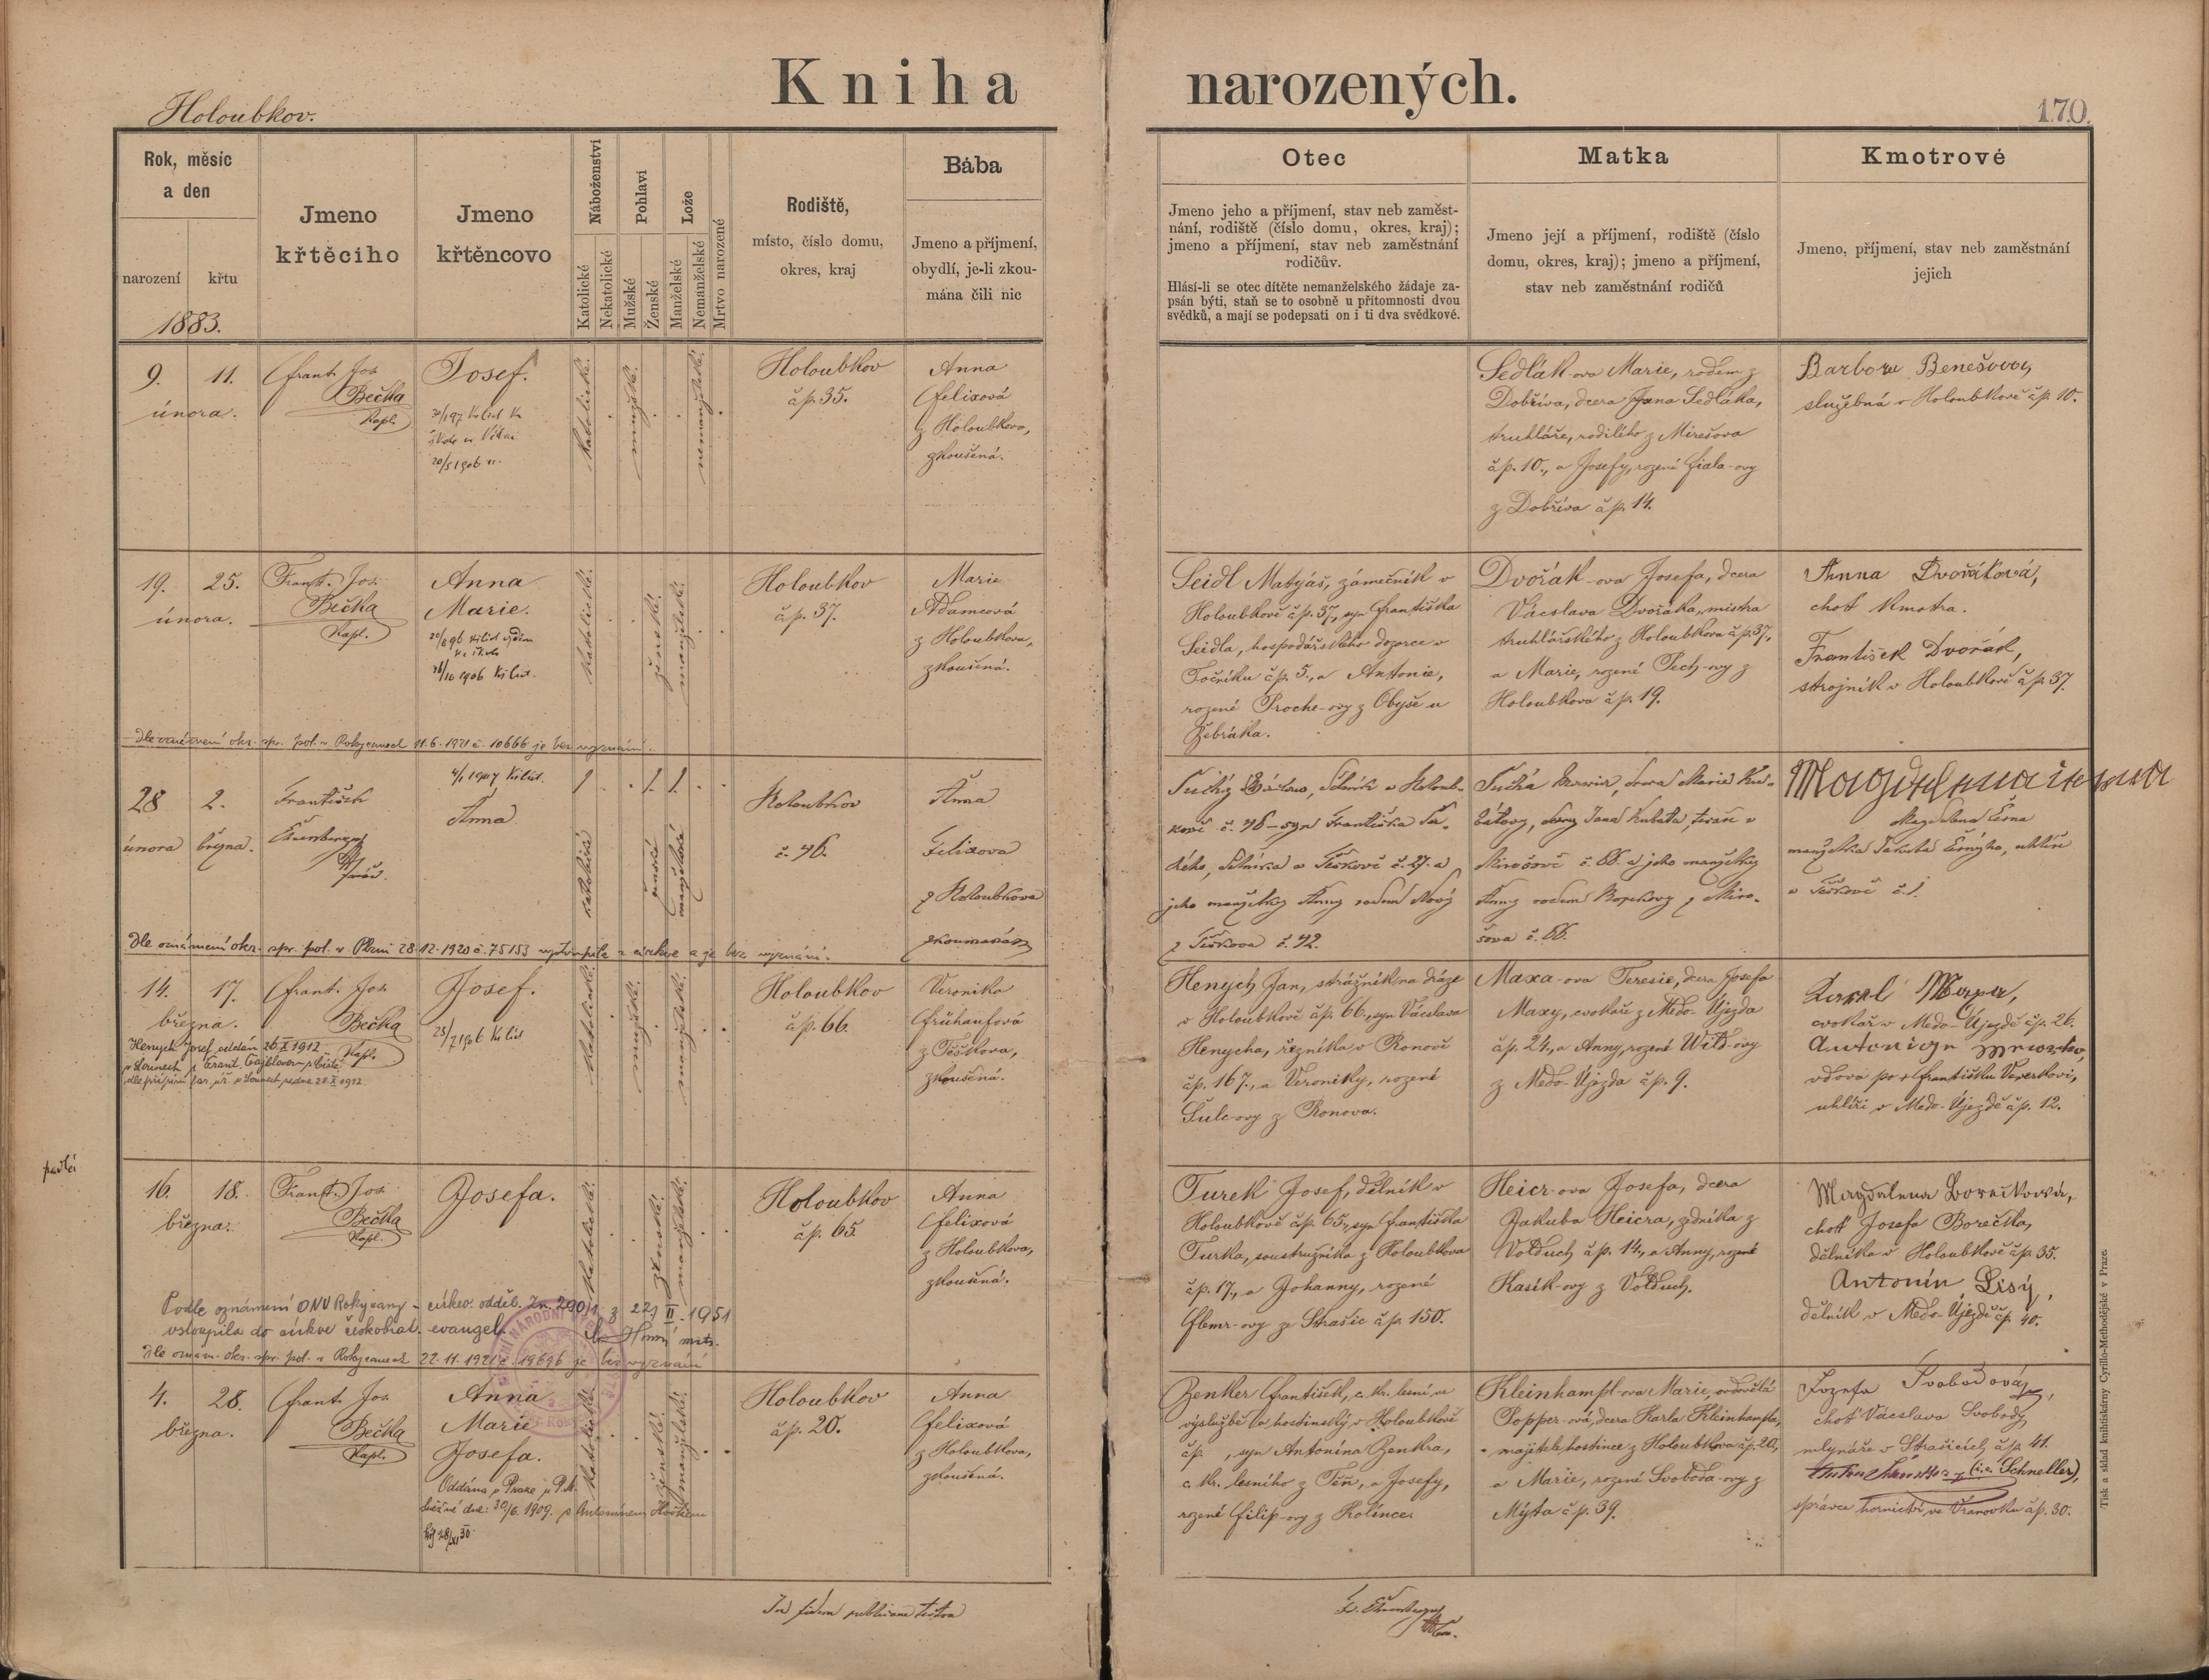 Kniha narozených.
Holoubkov.
170.
Rok, měsíc
a den
narození
křtu
1883.
Jmeno
křtěcího
Jmeno
křtěncovo
Náboženství
Katolické
Nekatolické
Pohlaví
Mužské
Ženské
Lože
Manželské
Nemanželské
Mrtvo narozené
Rodiště,
místo, číslo domu,
okres, kraj
Bába
Jmeno a příjmení,
obydlí, je-li zkou-
mána čili nic
Otec
Jmeno jeho a příjmení, stav neb zaměst-
nání, rodiště (číslo domu, okres, kraj);
jmeno a příjmení, stav neb zaměstnání
rodičův.
Hlásí-li se otec dítěte nemanželského žádaje za-
psán býti, staň se to osobně u přítomnosti dvou
svědků, a mají se podepsati on i ti dva svědkové.
Matka
Jmeno její a příjmení, rodiště (číslo
domu, okres, kraj); jmeno a příjmení,
stav neb zaměstnání rodičů
Kmotrové
Jmeno, příjmení, stav neb zaměstnání
jejich
9. 11.
února.
Frant. Jos.
Bečka
Kapl.
Josef.
katolické.
mužské.
nemanželské.
Holoubkov
čp. 35.
Anna
Felixová
z Holoubkova,
zkoušená.
Sedlák-ova Marie, rodem z
Dobříva, dcera Jana Sedláka,
truhláře, rodilého z Mirešova
čp. 10., a Josefy, rozené Fiala-ovy
z Dobříva čp. 14.
Barbora Benešova,
služebná v Holoubkově čp. 10.
19. 25.
února.
Frant. Jos.
Bečka
Kapl.
Anna
Marie.
katolické.
ženské.
manželské.
Holoubkov
čp. 37.
Marie
Adamcová
z Holoubkova,
zkoušená.
Seidl Matyáš, zámečník v
Holoubkově čp. 37., syn Františka
Seidla, hospodářského dozorce v
Točníku čp. 5., a Antonie,
rozené Proche-ovy z Obyše u
Žebráka.
Dvořák-ova Josefa, dcera
Václava Dvořáka, mistra
truhlářského z Holoubkova čp. 37.,
a Marie, rozené Pech-ovy z
Holoubkova čp. 19.
Anna Dvořáková,
choť kmotra.
František Dvořák,
strojník v Holoubkově čp. 37.
okr. spr. pol. v Rokycanech 11.6.1921 č. 10666 je bez vyznání.
28 2.
února března.
František
4/1 1907
Anna
katolické
ženské
manželské
Holoubkov
č. 46.
Anna
Felixova
z Holoubkova
zkoumaná
Suchý Václav, dělník v Holoub-
kově č. 46 – syn Františka Su-
chého, dělníka v Těškově č. 27. a
jeho manželky Anny rodem Nový
z Těškova č. 42.
Suchá dcera Marie Ku-
bátovy, dcery Jana Kubáta, tesaře v
Mirošově č. 66. a jeho manželky
Anny rodem z Miro-
šova č. 66.
Magdalena
Magdalena Černa
manželka Jakuba Černýho, uhlíře
v Těškově č. 1.
dle oznámení okr. spr. pol. v Plzni 28.12.1920 č. 75153 vystoupila z církve a je bez vyznání.
14. 17.
března.
Frant. Jos.
Bečka
Kapl.
Josef.
Henych Josef oddán 26.X 1912
v Lounech s
katolické.
mužské.
manželské.
Holoubkov
čp. 66.
Veronika
Frühaufová
z Těškova,
zkoušená.
Henych Jan, strážník na dráze
v Holoubkově čp. 66., syn Václava
Henycha, řezníka v Ronově
čp. 167., a Veroniky, rozené
Šulc-ovy z Ronova.
Maxa-ova Teresie, dcera Josefa
Maxy, cvokaře z Medo-Újezda
čp. 24., a Anny, rozené Witt-ovy
z Medo-Újezda čp. 9.
Karel Maxa,
cvokář v Medo-Újezdě čp. 26.
Antonie
vdova po Františku Veverkovi,
uhlíři v Medo-Újezdě čp. 12.
16. 18.
března.
Frant. Jos.
Bečka
Kapl.
Josefa.
katolické.
ženské.
manželské.
Holoubkov
čp. 65.
Anna
Felixová
z Holoubkova,
zkoušená.
Turek Josef, dělník v
Holoubkově čp. 65., syn Františka
Turka, soustružníka z Holoubkova
čp. 17., a Johanny, rozené
Flemr-ovy ze Strašic čp. 150.
Heicr-ova Josefa, dcera
Jakuba Heicra, zedníka z
Volduch čp. 14., a Anny, rozené
Kasík-ovy z Volduch.
Magdalena Borečková,
choť Josefa Borečka,
dělníka v Holoubkově čp. 35.
Antonín Lisý,
dělník v Medo-Újezdě čp. 40.
Podle oznámení ONV Rokycany – církev. odděl. Zn. 290/1 z 22/II. 1951
vstoupila do církve českobrat. evangel.
dle oznám. okr. spr. pol. v Rokycanech 22.11.1921 č. 19696 je bez vyznání
4. 28.
března.
Frant. Jos.
Bečka
Kapl.
Anna
Marie
Josefa.
Oddána v Praze u P.M.
dne: 30/6. 1909. s Antonínem
katolické.
ženské.
manželské.
Holoubkov
čp. 20.
Anna
Felixová
z Holoubkova,
zkoušená.
Zenker František, c. kr. lesní ve
výslužbě a hostinský v Holoubkově
čp. , syn Antonína Zenkra,
c. kr. lesního z Těň, a Josefy,
rozené Filip-ovy z Kolince.
Kleinhampl-ova Marie, ovdovělá
Popper-ová, dcera Karla Kleinhampla,
majitele hostince z Holoubkova čp. 20.,
a Marie, rozené Svoboda-ovy z
Mýta čp. 39.
Jozefa Svobodová,
choť Václava Svobody,
mlynáře v Strašicích čp. 41.
(i.e. Schneller),
správce hornictví ve Vranovku čp. 30.
In fidem publicam testor
Tisk a sklad knihtiskárny Cyrillo-Methodějské v Praze.